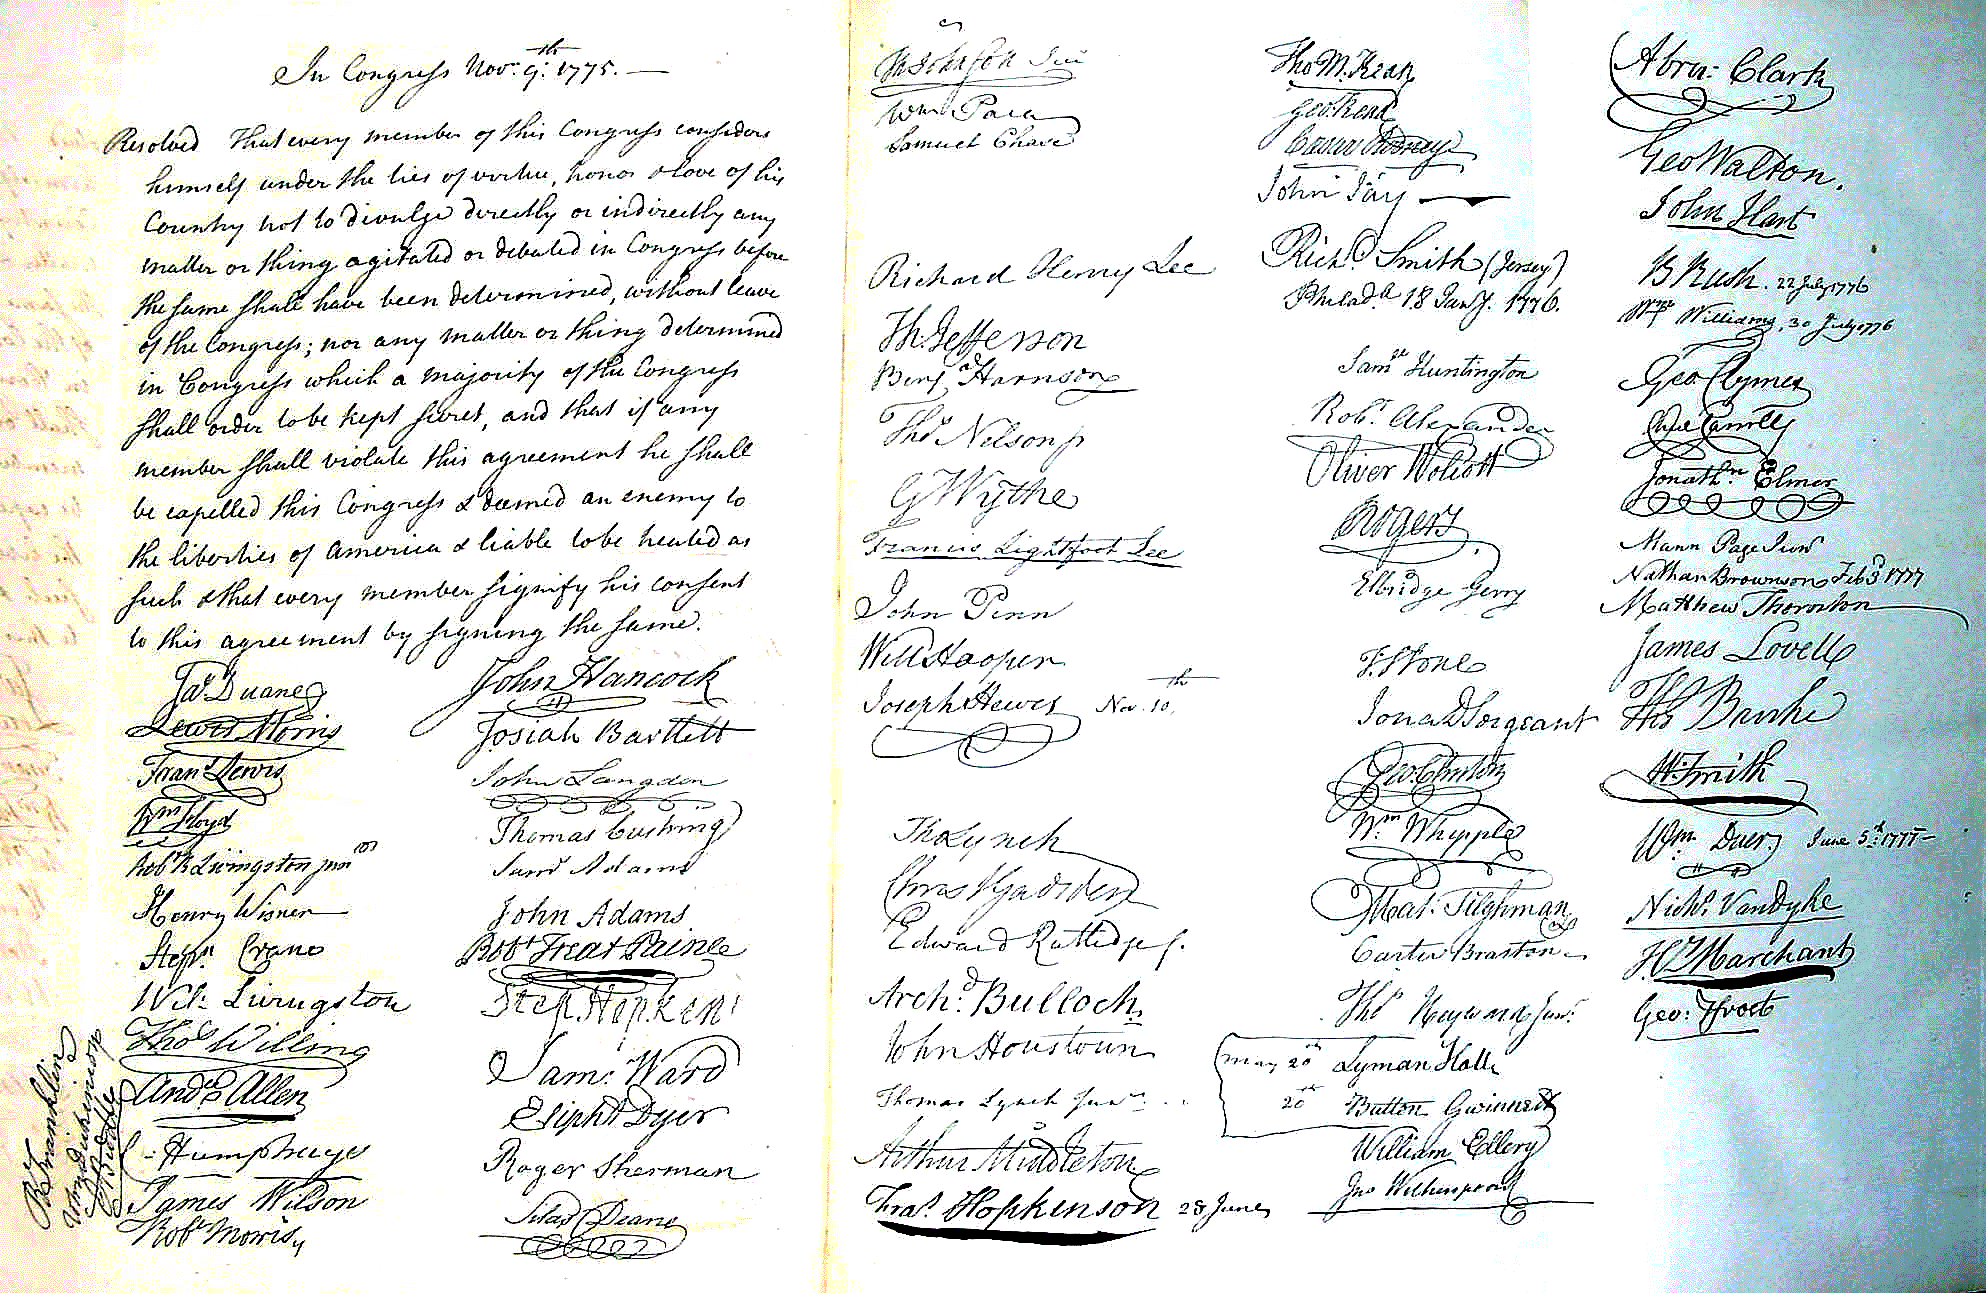 In Congress Nov.r 9.th 1775. —
Resolved That every member of this Congress considers
himself under the ties of virtue, honor & love of his
Country not to divulge directly or indirectly any
matter or thing agitated or debated in Congress before
the same shall have been determined, without leave
of the Congress; nor any matter or thing determined
in Congress which a majority of the Congress
shall order to be kept secret, and that if any
member shall violate this agreement he shall
be expelled this Congress & deemed an enemy to
the liberties of America & liable to be treated as
such & that every member signify his consent
to this agreement by signing the same.
Jas. Duane
Lewis Morris
Frans. Lewis
Wm Floyd
Robt R Livingston junr
Henry Wisner
Stepn. Crane
Wil: Livingston
Thos Willing
Andw Allen
C. Humphreys
James Wilson
Robt Morris
B Franklin
John Dickinson
John Hancock
Josiah Bartlett
John Langdon
Thomas Cushing
Saml Adams
John Adams
Robt Treat Paine
Step. Hopkins
Sam: Ward
Elipht Dyer
Roger Sherman
Silas Deane
Ths Johnson Jun
Wm Paca
Samuel Chase
Richard Henry Lee
Th. Jefferson
Benja Harrison
Thos Nelson jr
G Wythe
Francis Lightfoot Lee
John Penn
Will Hooper
Joseph Hewes Nov. 10th
Tho Lynch
Chris Gadsden
Edward Rutledge
Archd. Bulloch
John Houstoun
Thomas Lynch Junr
Arthur Middleton
Fras. Hopkinson 28 June
Tho M. Kean
Geo: Read
Caesar Rodney
John Jay
Richd. Smith (Jersey)
Philada. 18 Jany. 1776.
Saml Huntington
Robt. Alexander
Oliver Wolcott
Rogers
Elbridge Gerry
T. Stone
Jona D Sergeant
Geo Clinton
Wm Whipple
Mat: Tilghman
Carter Braxton
Thos Heyward Junr.
May 20th Lyman Hall
20th Button Gwinnett
William Ellery
Jno Witherspoon
Abra: Clark
Geo Walton.
John Hart
B Rush. 22 July 1776
Wm Williams, 30 July 1776
Geo Clymer
Jonathn. Elmer
Mann Page Junr
Nathan Brownson Feb 3d 1777
Matthew Thornton
James Lovell
Thos Burke
W. Smith
Wm Duer. June 5th 1777
Nichs. VanDyke
Hy Marchant
Geo: Frost